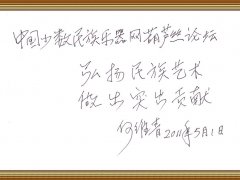 中国少数民族乐器网葫芦丝论坛
弘扬民族艺术
做出突出贡献
何维青 2011年5月1日